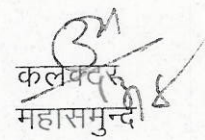 कलेक्टर
महासमुन्द